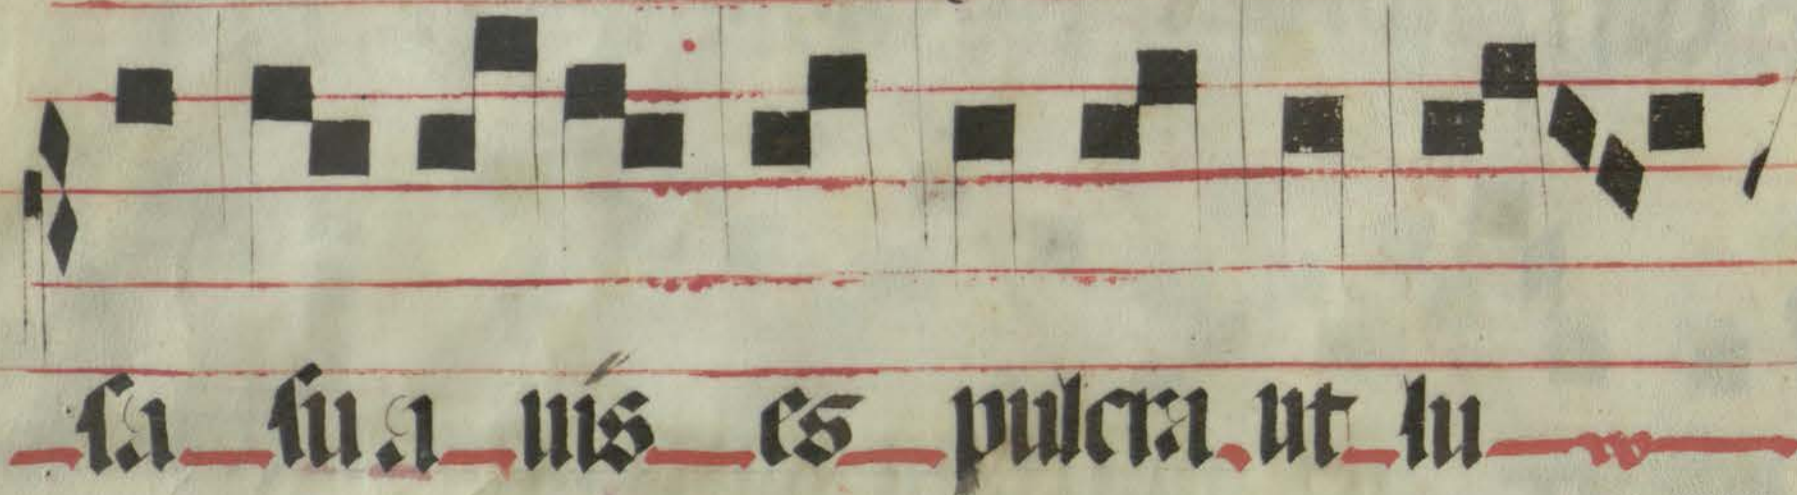 sa sua uis es pulcra ut lu